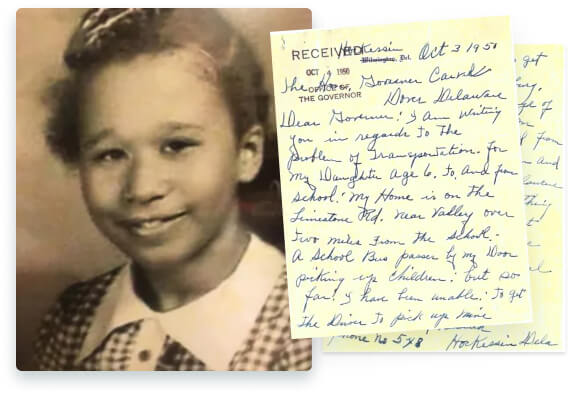 Hockessin
RECEIVED
Wilmington, Del. Oct 3 1950
OCT 1950
The Governor Carvel
OFFICE OF
THE GOVERNOR
Dover Delaware
Dear Governor: I Am Writing
you in regards to The
problem of Transportation. For
my Daughter Age 6. To. And from
School. My Home is on the
Limestone Rd. near Valley over
Two miles From the School.
A School Bus passes by my Door
picking up children: but so
far: I have been unable: To get
the Driver To pick up mine
phone No 5X8 Hockessin Dela
to get
of
from
and
thing